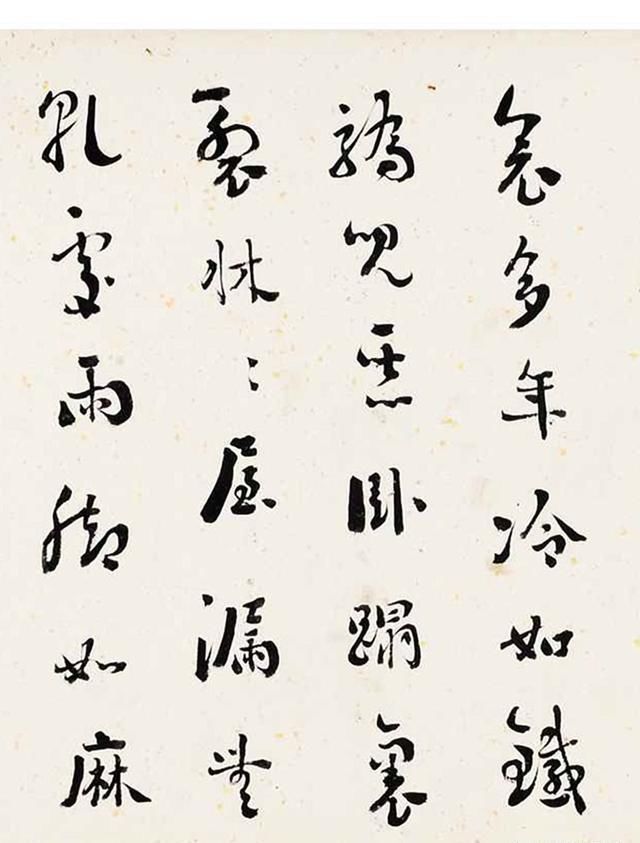 衾多年冷如鐵
驕兒惡臥蹋裏
裂牀〻屋漏無
乾處雨腳如麻